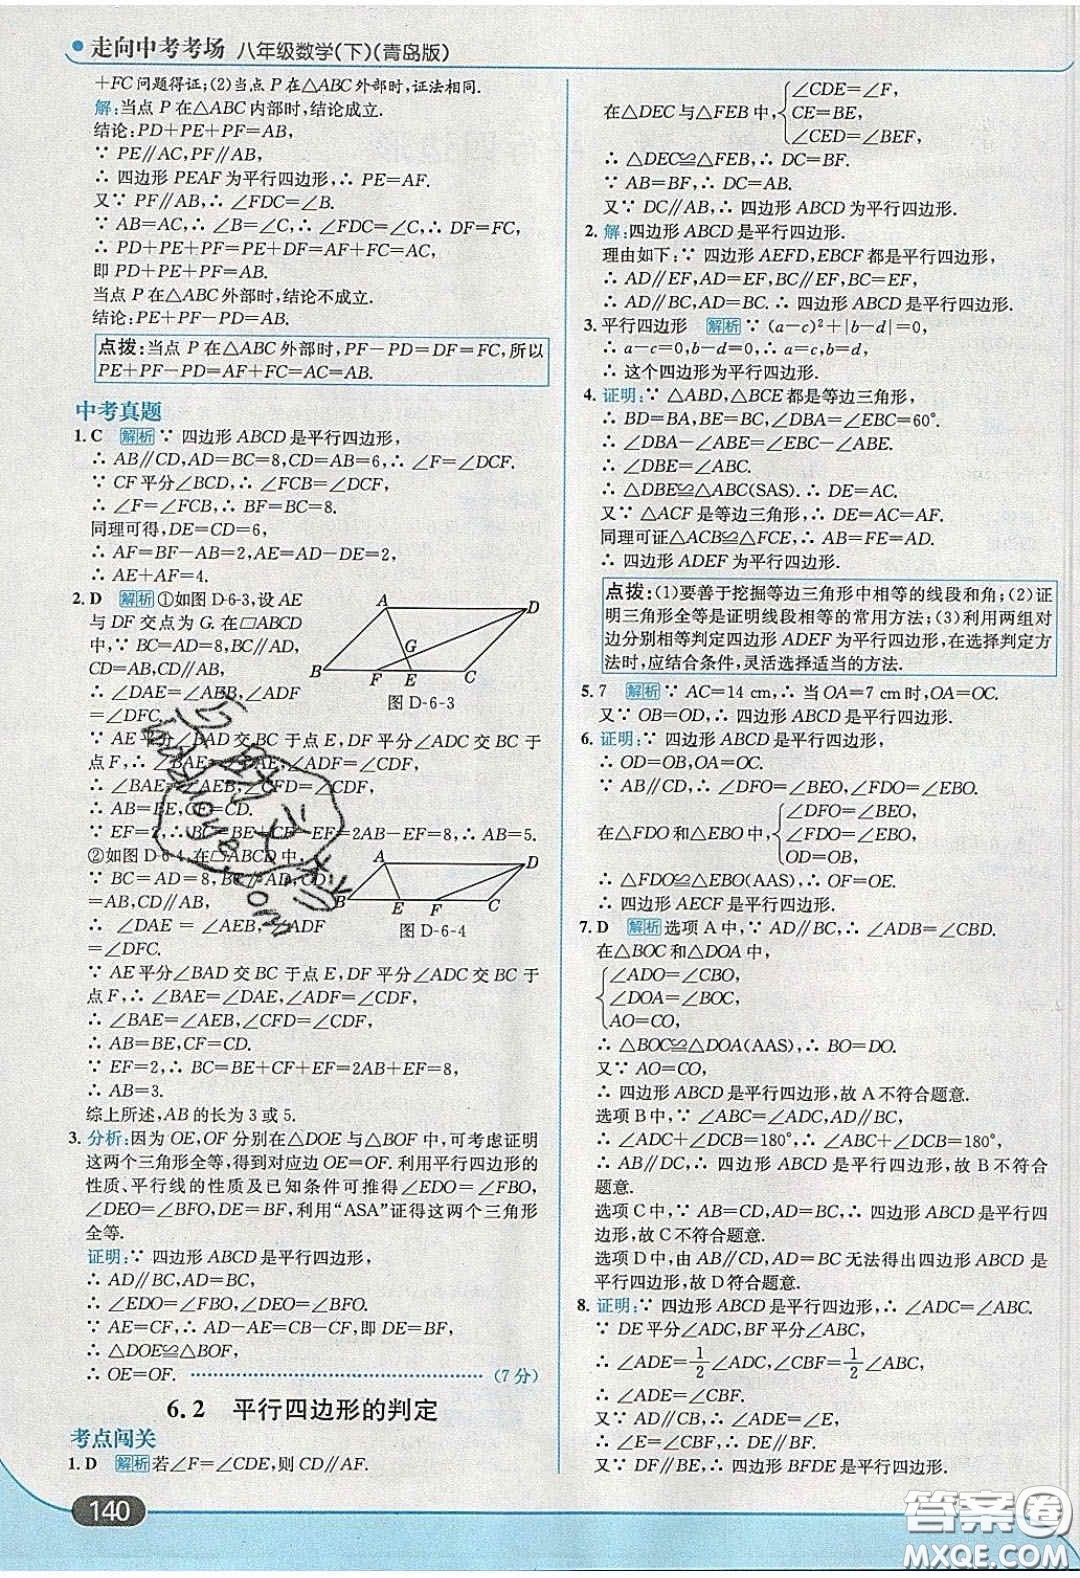 走向中考考场 八年级数学(下)(青岛版)
+FC问题得证;(2)当点 P 在△ABC 外部时,证法相同.
解:当点 P 在△ABC 内部时,结论成立.
结论:PD+PE+PF=AB,
∵ PE∥AC,PF∥AB,
∴ 四边形 PEAF 为平行四边形,∴ PE=AF.
又∵ PF∥AB,∴ ∠FDC=∠B.
∵ AB=AC,∴ ∠B=∠C,∴ ∠FDC=∠C,∴ DF=FC,
∴ PD+PE+PF=PE+DF=AF+FC=AC,
即 PD+PE+PF=AB.
当点 P 在△ABC 外部时,结论不成立.
结论:PE+PF-PD=AB.
点拨:当点 P 在△ABC 外部时,PF-PD=DF=FC,所以
PE+PF-PD=AF+FC=AC=AB.
中考真题
1. C 解析 ∵ 四边形 ABCD 是平行四边形,
∴ AB∥CD,AD=BC=8,CD=AB=6,∴ ∠F=∠DCF.
∵ CF 平分∠BCD,∴ ∠FCB=∠DCF,
∴ ∠F=∠FCB,∴ BF=BC=8.
同理可得,DE=CD=6,
∴ AF=BF-AB=2,AE=AD-DE=2,
∴ AE+AF=4.
2. D 解析 ①如图 D-6-3,设 AE
与 DF 交点为 G. 在□ABCD
中,∵ BC=AD=8,BC∥AD,
CD=AB,
∴ ∠DAE=∠AEB,∠ADF
=∠DFC.
A D G B F E C
图 D-6-3
∵ AE 平分∠BAD 交 BC 于点 E,DF 平分∠ADC 交 BC 于
点 F,∴ ∠BAE=∠DAE,∠ADF=∠CDF,
∴ ∠BAE=∠AEB,∠CFD=∠CDF,
∴ AB=BE,CF=CD.
∵ EF=2,∴ BC=BE+CF-EF=2AB-EF=8,∴ AB=5.
②如图 D-6-4,在□ABCD 中,
∵ BC=AD=8,BC∥AD,CD
=AB,∠
∴ ∠DAE=∠AEB,∠ADF
=∠DFC.
A D B E F C
图 D-6-4
∵ AE 平分∠BAD 交 BC 于点 E,DF 平分∠ADC 交 BC 于
点 F,∴ ∠BAE=∠DAE,∠ADF=∠CDF,
∴ ∠BAE=∠AEB,∠CFD=∠CDF,
∴ AB=BE,CF=CD.
∵ EF=2,∴ BC=BE+CF+EF=2AB+EF=8,
∴ AB=3.
综上所述,AB 的长为 3 或 5.
3. 分析:因为 OE,OF 分别在△DOE 与△BOF 中,可考虑证明
这两个三角形全等,得到对应边 OE=OF. 利用平行四边形的
性质、平行线的性质及已知条件可推得∠EDO=∠FBO,
∠DEO=∠BFO,DE=BF,利用“ASA”证得这两个三角形
全等.
证明:∵ 四边形 ABCD 是平行四边形,
∴ AD∥BC,AD=BC,
∴ ∠EDO=∠FBO,∠DEO=∠BFO.
∵ AE=CF,∴ AD-AE=CB-CF,即 DE=BF,
∴ △DOE≌△BOF,
∴ OE=OF. ……………………………… (7 分)
6.2 平行四边形的判定
考点闯关
1. D 解析 若∠F=∠CDE,则 CD∥AF.
140
在△DEC 与△FEB 中, {∠CDE=∠F,
CE=BE,
∠CED=∠BEF,
∴ △DEC≌△FEB,∴ DC=BF.
∵ AB=BF,∴ DC=AB.
又∵ DC∥AB,∴ 四边形 ABCD 为平行四边形.
2. 解:四边形 ABCD 是平行四边形.
理由如下:∵ 四边形 AEFD,EBCF 都是平行四边形,
∴ AD∥EF,AD=EF,BC∥EF,BC=EF,
∴ AD∥BC,AD=BC. ∴ 四边形 ABCD 是平行四边形.
3. 平行四边形 解析 ∵ (a-c)²+|b-d|=0,
∴ a-c=0,b-d=0,∴ a=c,b=d,
∴ 这个四边形为平行四边形.
4. 证明:∵ △ABD,△BCE 都是等边三角形,
∴ BD=BA,BE=BC,∠DBA=∠EBC=60°.
∴ ∠DBA-∠ABE=∠EBC-∠ABE.
∴ ∠DBE=∠ABC.
∴ △DBE≌△ABC(SAS). ∴ DE=AC.
又∵ △ACF 是等边三角形,∴ DE=AC=AF.
同理可证△ACB≌△FCE,∴ AB=FE=AD.
∴ 四边形 ADEF 为平行四边形.
点拨:(1)要善于挖掘等边三角形中相等的线段和角;(2)证
明三角形全等是证明线段相等的常用方法;(3)利用两组对
边分别相等判定四边形 ADEF 为平行四边形,在选择判定方
法时,应结合条件,灵活选择适当的方法.
5. 7 解析 ∵ AC=14 cm,∴ 当 OA=7 cm 时,OA=OC.
又∵ OB=OD,∴ 四边形 ABCD 是平行四边形.
6. 证明:∵ 四边形 ABCD 是平行四边形,
∴ OD=OB,OA=OC.
∵ AB∥CD,∴ ∠DFO=∠BEO,∠FDO=∠EBO.
在△FDO 和△EBO 中, {∠DFO=∠BEO,
∠FDO=∠EBO,
OD=OB,
∴ △FDO≌△EBO(AAS),∴ OF=OE.
∴ 四边形 AECF 是平行四边形.
7. D 解析 选项 A 中,∵ AD∥BC,∴ ∠ADB=∠CBD.
在△BOC 和△DOA 中,
{∠ADO=∠CBO,
∠DOA=∠BOC,
AO=CO,
∴ △BOC≌△DOA(AAS),∴ BO=DO.
又∵ AO=CO,
∴ 四边形 ABCD 是平行四边形,故 A 不符合题意.
选项 B 中,∵ ∠ABC=∠ADC,AD∥BC,
∴ ∠ADC+∠DCB=180°,∴ ∠ABC+∠DCB=180°,
∴ AB∥CD,∴ 四边形 ABCD 是平行四边形,故 B 不符合题意.
选项 C 中,∵ AB=CD,AD=BC,∴ 四边形 ABCD 是平行四
边形,故 C 不符合题意.
选项 D 中,由 AB=CD,AD=BC 无法得出四边形 ABCD 是
平行四边形,故 D 符合题意.
8. 证明:∵ 四边形 ABCD 是平行四边形,∴ ∠ADC=∠ABC.
∵ DE 平分∠ADC,BF 平分∠ABC,
∴ ∠ADE=1/2∠ADC,∠CBF=1/2∠ABC,
又∵ AD=AE,∴ ∠ADE=∠E,
∴ ∠E=∠CBF,∴ DE∥BF.
又∵ DF∥BE,∴ 四边形 BFDE 是平行四边形.
答案圈
MXQE.COM